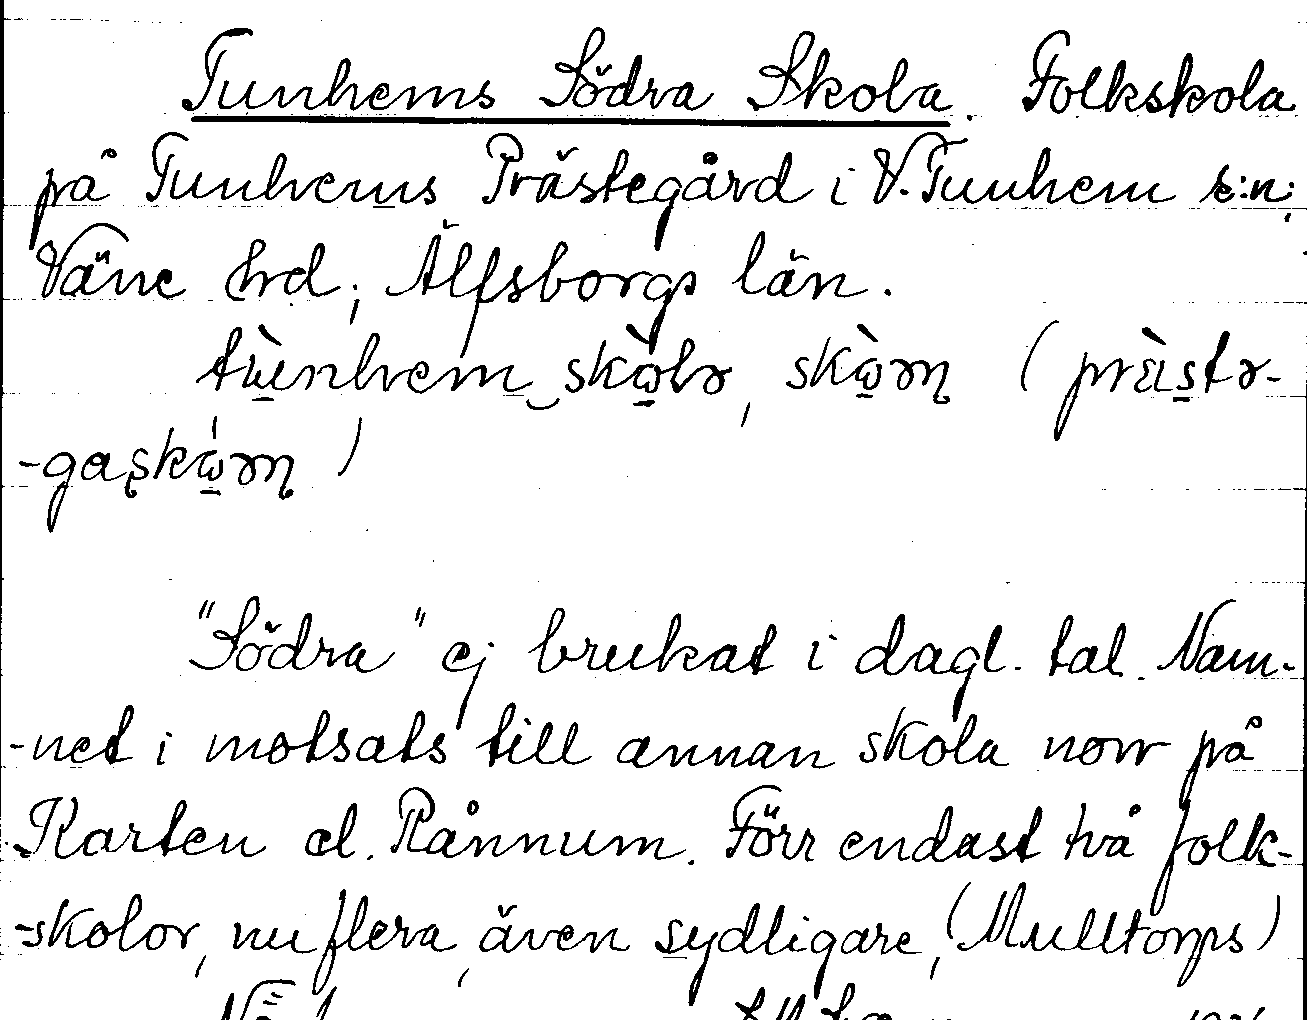 Tunhems Södra Skola. Folkskola
på Tunhems Prästegård i V. Tunhem s:n;
Väne hrd; Älfsborgs län.
"Södra" ej brukat i dagl. tal. Nam-
-net i motsats till annan skola norr på
Karten el. Rånnum. Förr endast två folk-
-skolor, nu flera, även sydligare, (Mulltorps)